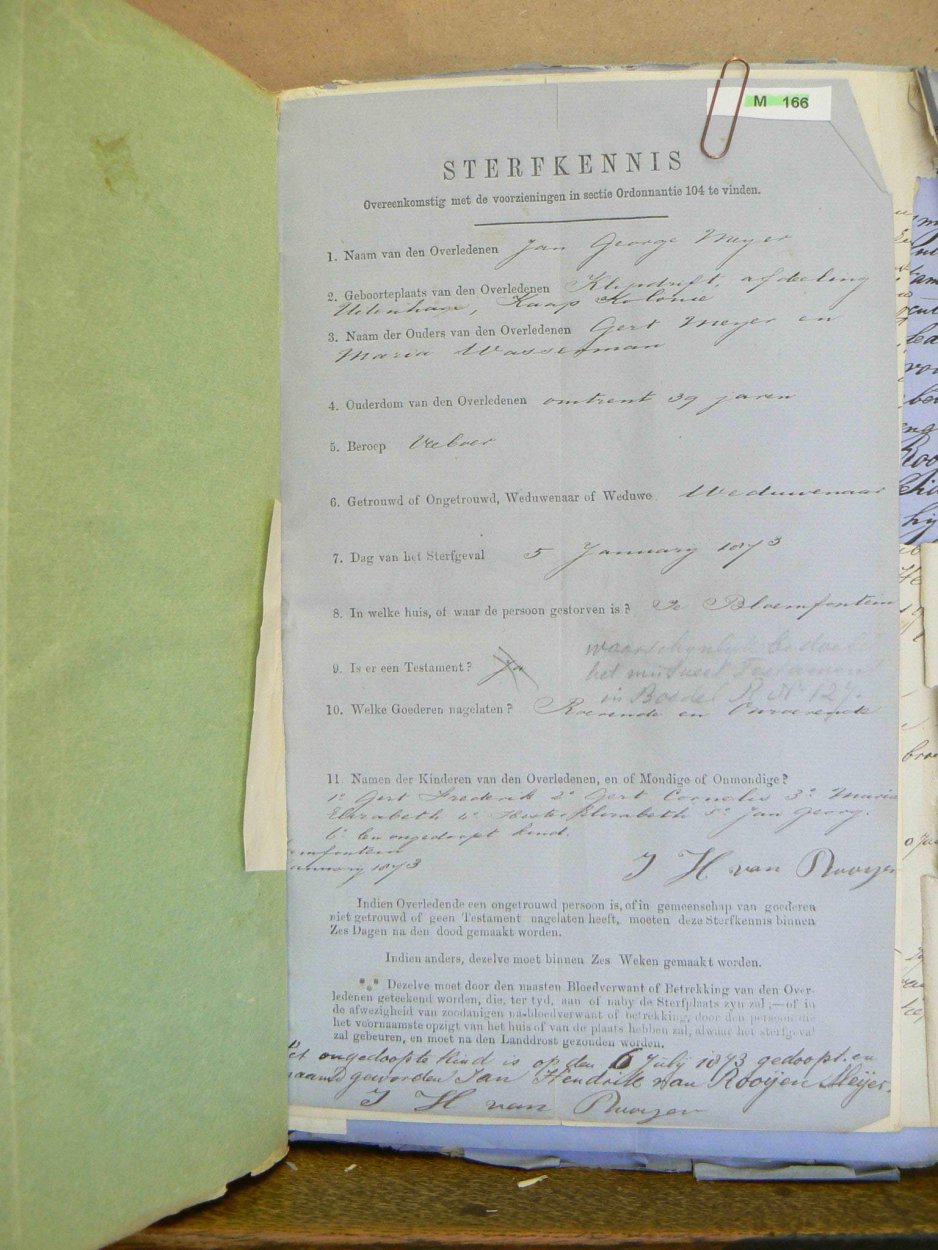 M 166
STERFKENNIS
Overeenkomstig met de voorzieningen in sectie Ordonnantie 104 te vinden.
1. Naam van den Overledenen Jan George Meyer
2. Geboorteplaats van den Overledenen Klipdrift, afdeeling
Uitenhage, Kaap Kolonie
3. Naam der Ouders van den Overledenen Gert Meyer en
Maria Wasserman
4. Ouderdom van den Overledenen omtrent 39 jaren
5. Beroep Veeboer
6. Getrouwd of Ongetrouwd, Weduwenaar of Weduwe. Weduwenaar
7. Dag van het Sterfgeval 5 January 1873
8. In welke huis, of waar de persoon gestorven is? Te Bloemfontein
waarschynlyk bedoeld
9. Is er een Testament? Ja
het mutueel Testament
in Boedel R No 127.
10. Welke Goederen nagelaten? Roerende en Onroerende
11. Namen der Kinderen van den Overledenen, en of Mondige of Onmondige?
1o Gert Frederik 2o Gert Cornelis 3o Maria
Elizabeth 4o Hester Elizabeth 5o Jan Georg.
6o Een ongedoopt kind.
emfontein
anuary 1873
J H van Rooyen
Indien Overledende een ongetrouwd persoon is, of in gemeenschap van goederen
niet getrouwd of geen Testament nagelaten heeft, moeten deze Sterfkennis binnen
Zes Dagen na den dood gemaakt worden.
Indien anders, dezelve moet binnen Zes Weken gemaakt worden.
⁂ Dezelve moet door den naasten Bloedverwant of Betrekking van den Over-
ledenen geteekend worden, die, ter tyd, aan of naby de Sterfplaats zyn zal;—of in
de afwezigheid van zoodanigen na-bloedverwant of betrekking, door den persoon die
het voornaamste opzigt van het huis of van de plaats hebben zal, alwaar het sterfgeval
zal gebeuren, en moet na den Landdrost gezonden worden.
Het ongedoopte kind is op den 6 July 1873 gedoopt en
naamd geworden Jan Hendrik van Rooijen Meijer.
J H van Rooyen